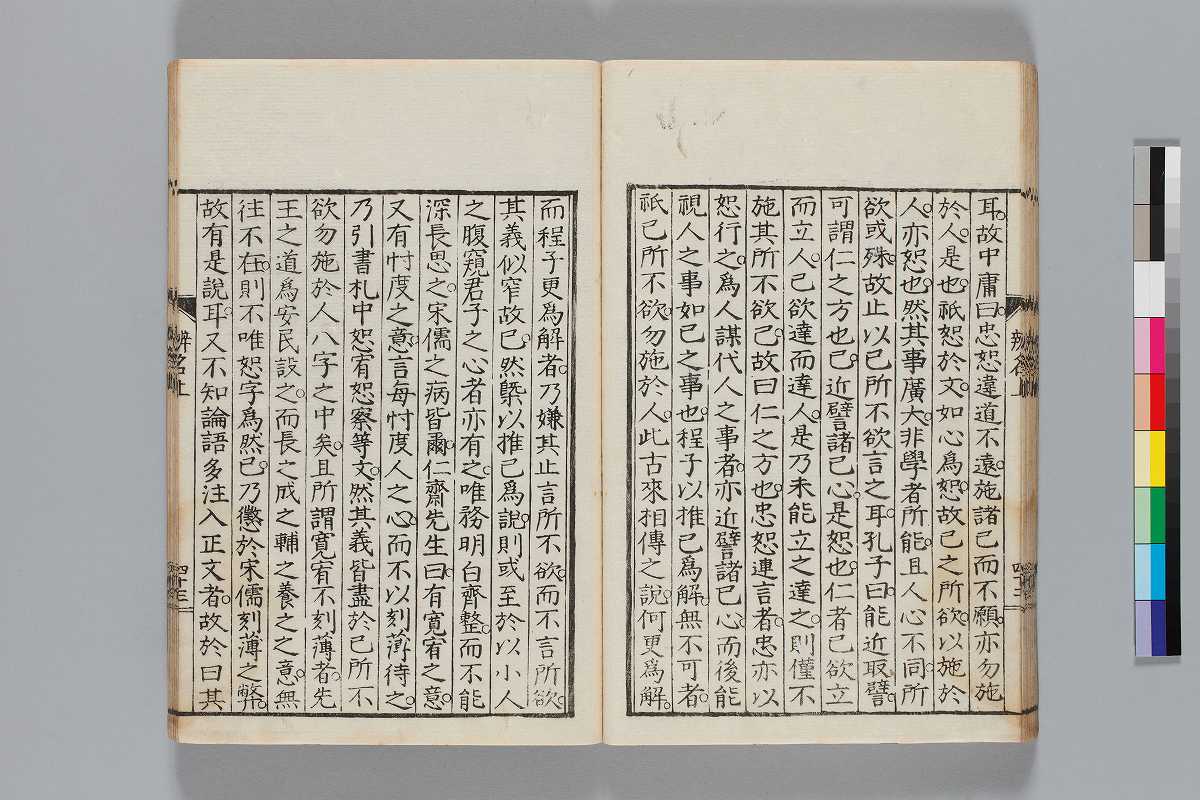 耳。故中庸曰。忠恕違道不遠。施諸己而不願。亦勿施
於人。是也。祇恕於文。如心爲恕。故己之所欲。以施於
人。亦恕也。然其事廣大。非學者所能。且人心不同。所
欲或殊。故止以己所不欲言之耳。孔子曰。能近取譬。
可謂仁之方也已。近譬諸己心。是恕也。仁者己欲立
而立人。己欲達而達人。是乃未能立之達之。則僅不
施其所不欲已。故曰仁之方也。忠恕連言者。忠亦以
恕行之。爲人謀代人之事者。亦近譬諸己心。而後能
視人之事如己之事也。程子以推己爲解。無不可者。
祇己所不欲。勿施於人。此古來相傳之說。何更爲解。
辨名上
四十二
而程子更爲解者。乃嫌其止言所不欲。而不言所欲。
其義似窄故已。然槩以推己爲說。則或至於以小人
之腹窺君子之心者亦有之。唯務明白齊整。而不能
深長思之。宋儒之病皆爾。仁齋先生曰。有寬宥之意。
又有忖度之意。言每忖度人之心。而不以刻薄待之。
乃引書札中恕宥恕察等文。然其義皆盡於己所不
欲勿施於人八字之中矣。且所謂寬宥不刻薄者。先
王之道爲安民設之。而長之成之輔之養之之意。無
往不在。則不唯恕字爲然已。乃懲於宋儒刻薄之弊。
故有是說耳。又不知論語多注入正文者。故於曰其
辨名上
四十三